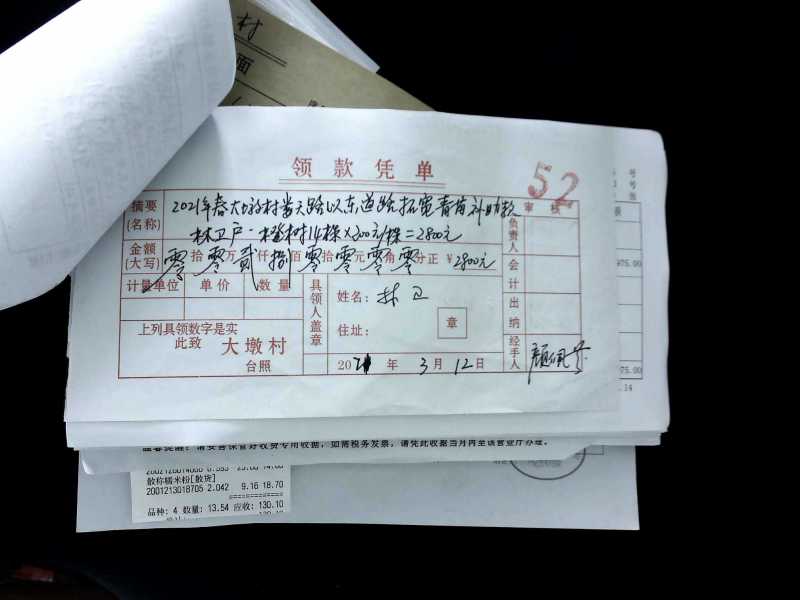 村
面
领款凭单
52
摘要
(名称)
2021年春大墩村 路以东道路拓宽青苗补助款
林卫户·橙树14株×200元/株=2800元
审核
金额
(大写)
零拾零万贰仟捌佰零拾零元零角零分正 ¥2800元
计量单位 单价 数量
具领人盖章
姓名: 林卫
住址:
章
上列具领数字是实
此致 大墩村
台照
2021年3月12日
负责人
会计
出纳
经手人
颜佩芬
号号张
975.00
75.00
.14
温馨提醒:请妥善保管好收费专用收据,如需税务发票,请凭此收据当月内至该营业厅办理。
散称糯米粉[散货]
2001213018705 2.042 9.16 18.70
品种: 4 数量: 13.54 应收: 130.10